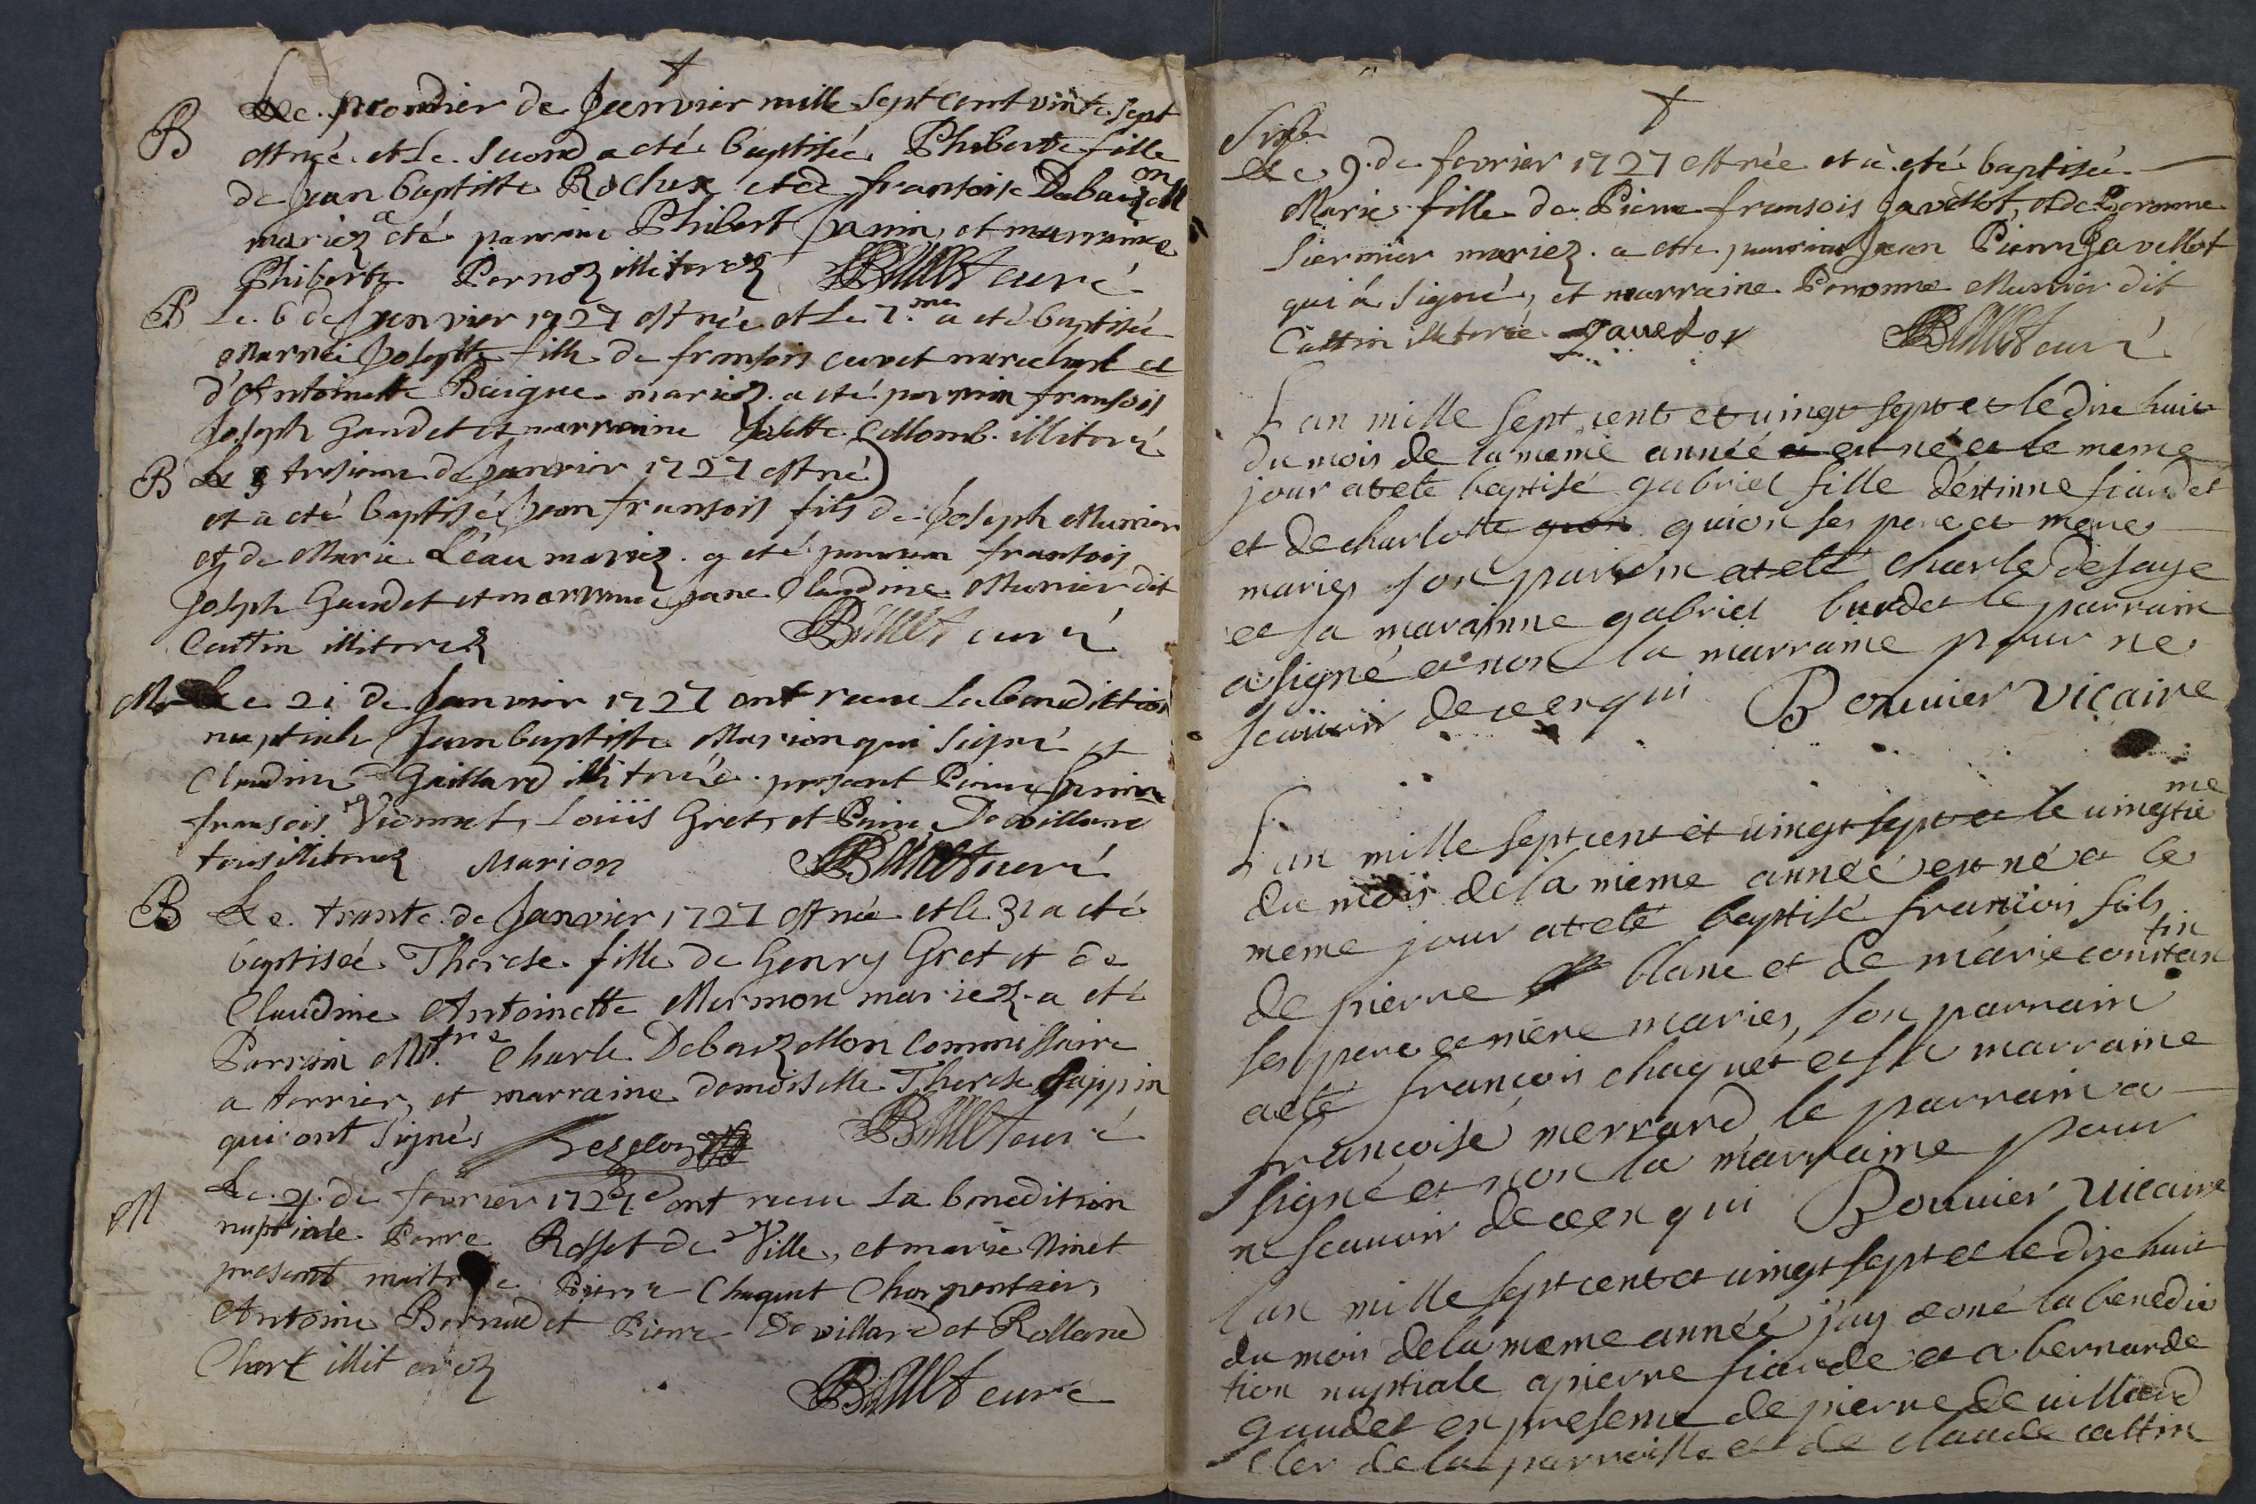 B Le premier de Janvier mille sept cent vinte sept
est née et le second a eté baptiséé Phiberte fille
de Jean baptiste Roclus et de fransoise Debauzon
mariez a eté parrain Phibert Janin et marraine
Phiberte Pernoz illiterez Billiet curé
B Le 6 de Janvier 1727 est née et le 7.me a eté baptisée
Marrie Josephte fille de fransois cuvet marechal et
d'Antoinette Buigue mariez a eté parrain fransois
Joseph Gaudet et marraine Collomb illiteré
B Le 9 tresieme de Janvier 1727 est né
et a eté baptisé Jean fransois fils de Joseph Munier
et de Marie Léau mariez a eté parrain fransois
Joseph Gaudet et marraine Jane Claudine Munier dit
Cattin illiterez Billiet curé
M Le 21 de Janvier 1727 ont receu la benediction
nuptiale Jean baptiste Marion qui signé et
Claudine Gaillard illiterée present Pierre Janin
fransois Vionnet, Loüis Gret, et Pierre Devillard
tous illiterez Marion Billiet curé
B Le trante de Janvier 1727 est née et le 31 a eté
baptiséé Therese fille de Henry Gret et de
Claudine Antoinette Mermon mariez a eté
Parrain M.tre Charle Debauzellon Commissaire
a terrier, et marraine demoiselle Therese Juppin
qui ont signés Billiet curé
M Le 4 de fevrier 1727 ont receu la benedition
nuptiale Pierre Rosset de Ville, et marie Ninet
present maitre Pierre Chaquet Charpentier,
Antoine Bernadet Pierre Devillard et Rolland
Charle illiterez
Billiet curé
Le 9. de fevrier 1727 est née et à eté baptisée
Marie fille de Pierre fransois Javellot, et de Peronne
Siermier mariez a ette parrain Jean Pierre Javellot
qui à signé, et marraine Peronne Munier dit
Cattin illiterée Javelot Billiet curé
L an mille sept cent et vingt sept et le dixe huit
du mois de la meme annéé a est né et le meme
jour at eté baptisé gabriel fille déstinne fiaudet
et de charlotte quion quion ses pere et mere
maries son parrin at eté charle desaye
et sa marainne gabriel burdet le parrain
a signé et non la marraine pour ne
scauoir de ce enqui Bouuier Vicaire
L an mille sept cent et uingt sept et le uingtieme
du mois de la meme année est né et le
meme jour at eté baptisé francois fils
de pierre blanc et de marie constantin
ses pere et mere maries, son parrain
a eté francois chaquet et sa marraine
francoise merrard le parrain a
signé et non la marraine pour
ne scauoir de ce enqui Bouuier Uicaire
l an mille sept cent et uingt sept et le dixe huit
du mois de la meme année j'ay doné la benedic
tion nuptiale a pierre fiaude et a bernarde
gaudet en presence de pierre de uillard
Cler de la parroisse et de claude cattin